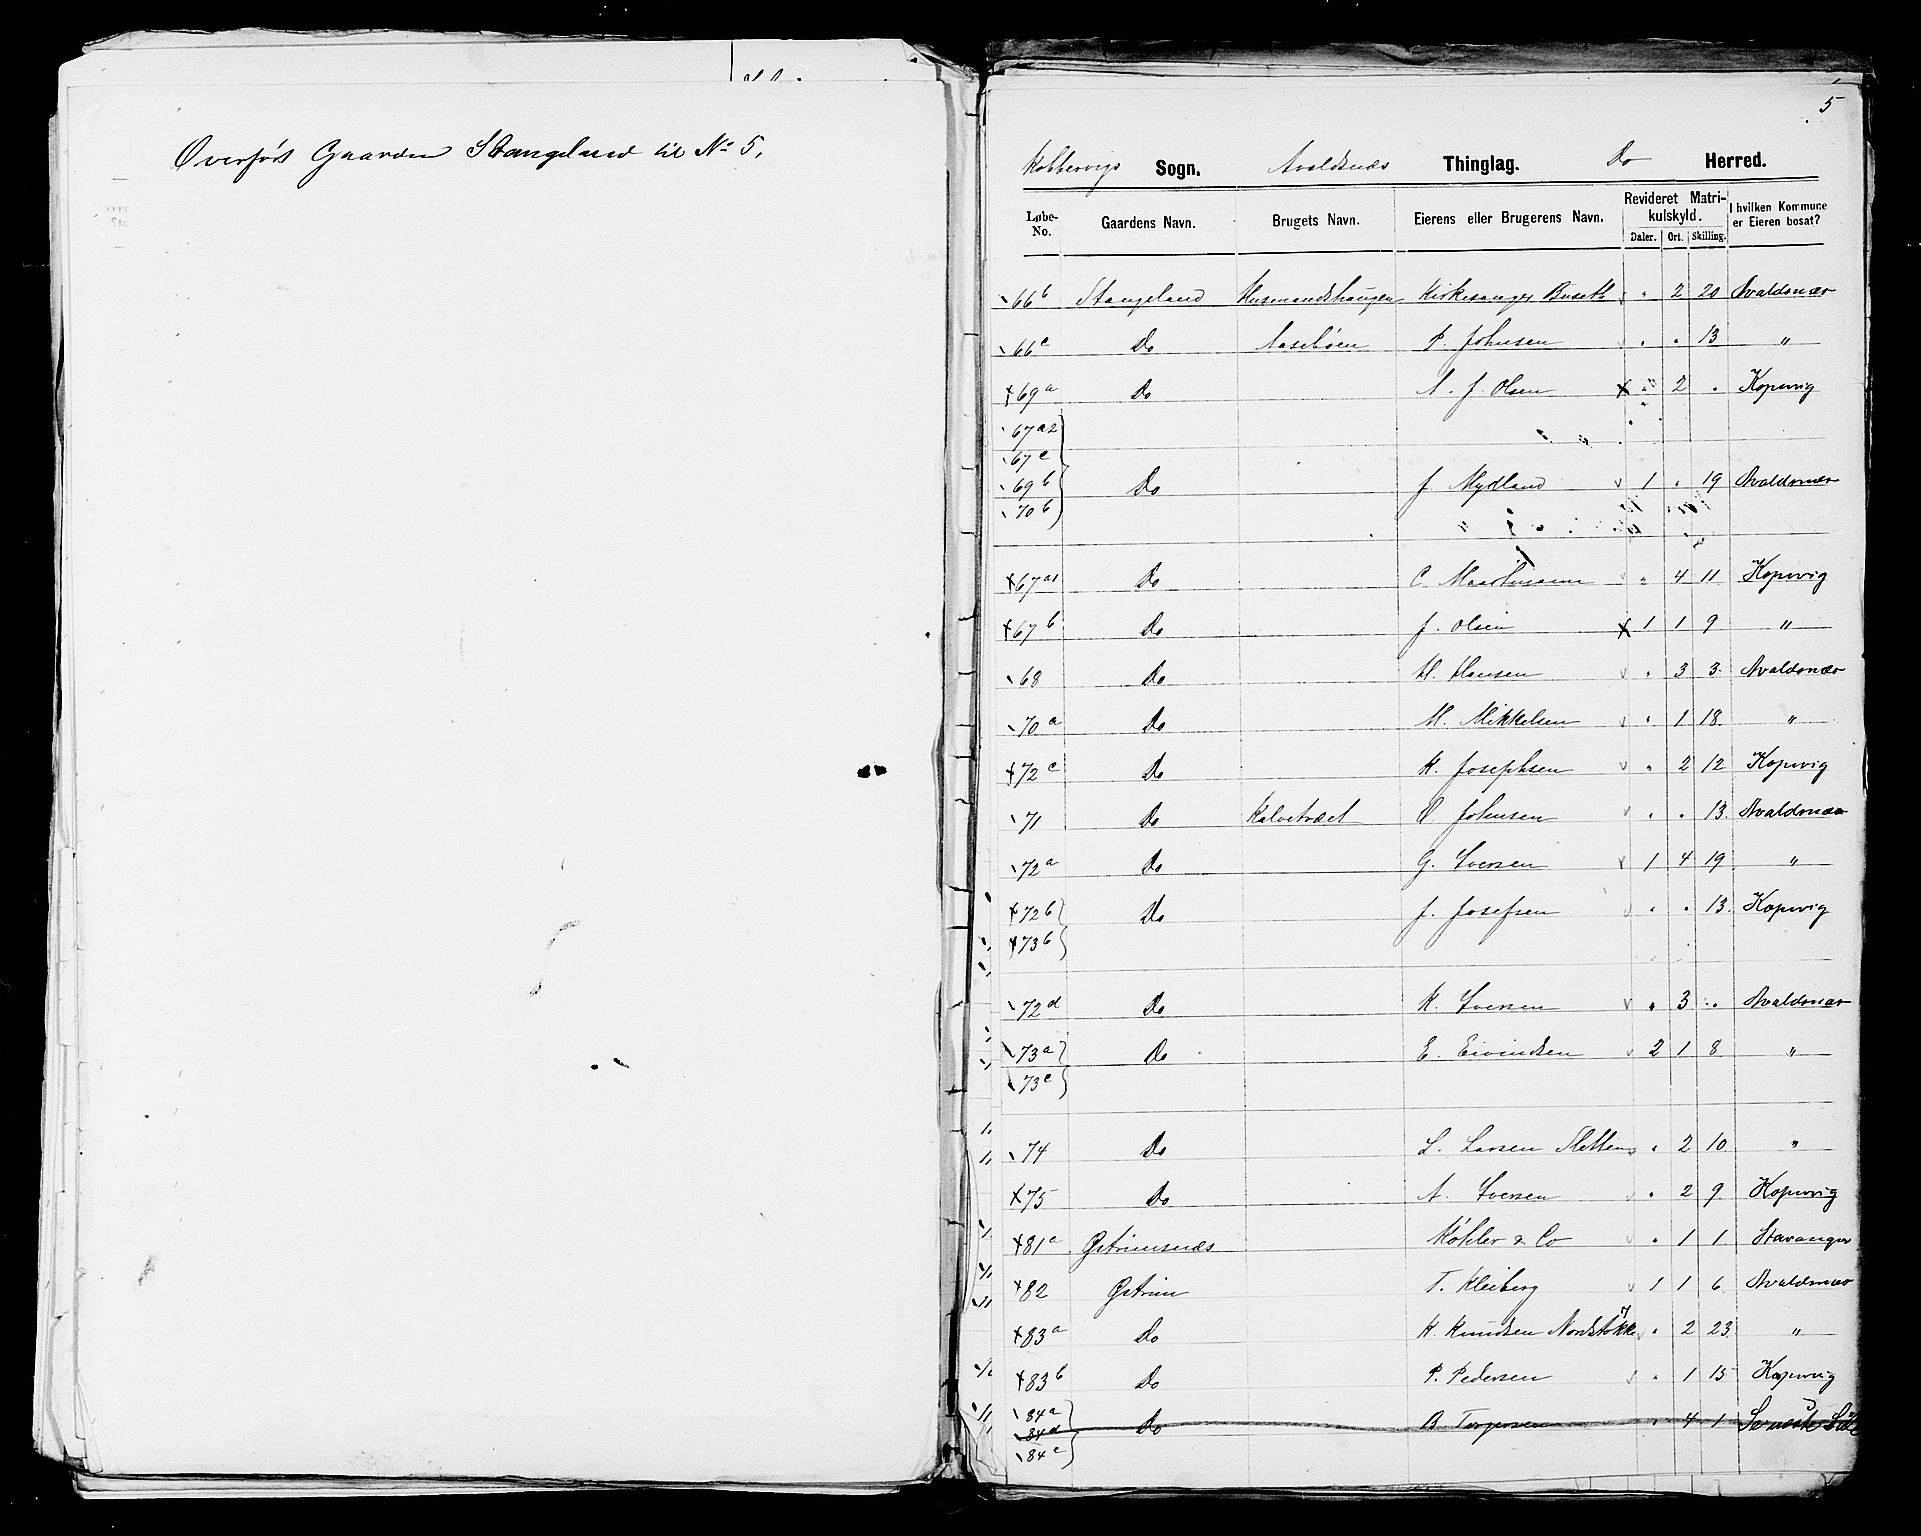 Overført Gaarden Stangeland til No 5,
5
Kobbervigs Sogn. Avaldsnæs Thinglag. Do Herred.
Løbe-No. Gaardens Navn. Brugets Navn. Eierens eller Brugerens Navn. Revideret Matrikulskyld. Daler. Ort. Skilling. I hvilken Kommune er Eieren bosat?
66 b Stangeland Husmandshaugen Kirkesanger Buseth " 2 20 Avaldsnæs
66 c Do Aasebøen P. Johnsen " " 13 "
69 a Do A. J. Olsen " 2 " Kopervig
67 a2
67 c
69 b Do J. Mykland 1 " 19 Avaldsnæs
70 b
67 a1 Do C. " 4 11 Kopervig
67 b Do J. Olsen 1 1 9 "
68 Do H. Hansen " 3 3 Avaldsnæs
70 a Do M. Mikkelsen " 1 18 "
72 c Do K. Josephsen " 2 12 Kopervig
71 Do Kalvetræet O. Johnsen " " 13 Avaldsnæs
72 a Do G. Iversen 1 4 19 "
72 b Do J. Josefsen " " 13 Kopervig
73 b
72 d Do K. Iversen " 3 " Avaldsnæs
73 a Do E. Eivindsen 2 1 8 "
73 c
74 Do L. Larsen " 2 10 "
75 Do A. Iversen " 2 9 Kopervig
81 a Østrimsnæs Køhler & Co " 1 1 Stavanger
82 Østrim T. Kleiberg 1 1 6 Avaldsnæs
83 a Do K. Knudsen Nordstokke " 2 23 "
83 b Do P. Pedersen " 1 15 Kopervig
84 a
84 d Do B Torgersen " 4 1 Se næste Side
84 c